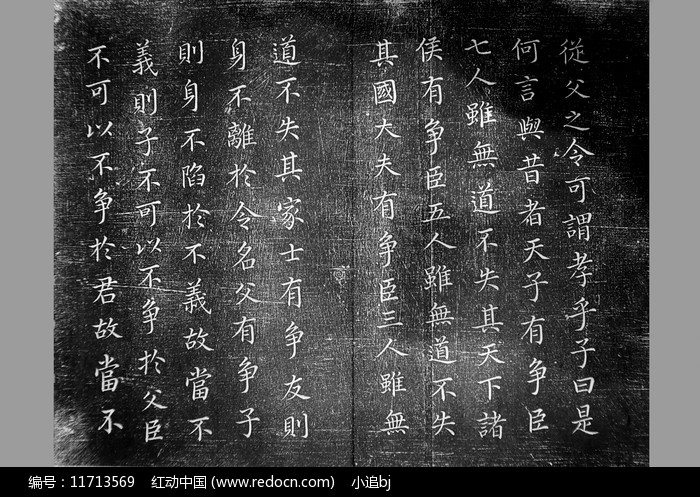 從父之令可謂孝乎子曰是
何言與昔者天子有争臣
七人雖無道不失其天下諸
侯有争臣五人雖無道不失
其國大夫有争臣三人雖無
道不失其家士有争友則
身不離於令名父有争子
則身不陷於不義故當不
義則子不可以不争於父臣
不可以不争於君故當不
编号：11713569 红动中国 (www.redocn.com) 小追bj